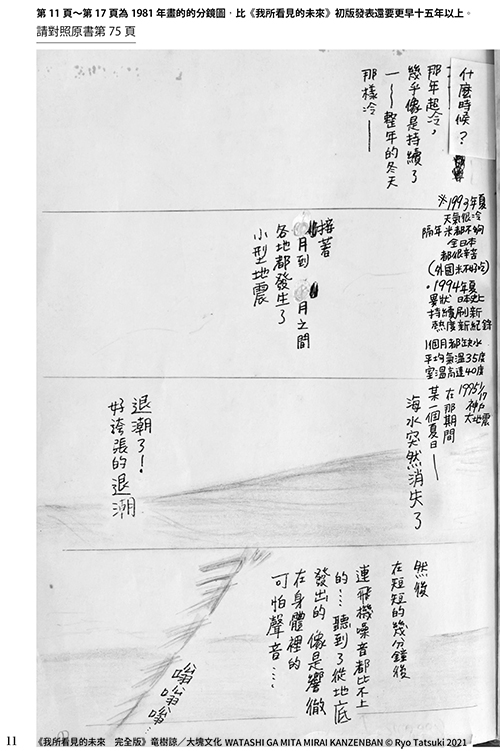 第 11 頁～第 17 頁為 1981 年畫的的分鏡圖，比《我所看見的未來》初版發表還要更早十五年以上。
請對照原書第 75 頁
什麼時候？
那年超冷，
幾乎像是持續了
一～～整年的冬天
那樣冷——
※1993年夏
天氣很冷
隔年米都不夠
全日本
都很辛苦
(外國米不好吃)
・1994年夏
異狀 日本史上
持續刷新
熱度新紀錄
1個月都缺水
平均氣溫35度
室溫高達40度
1995 1/17
神戶
大地震
接著
月到 月之間
各地都發生了
小型地震
在那期間
某一個夏日——
海水突然消失了
退潮了！
好誇張的退潮
然後
在短短的幾分鐘後
連飛機噪音都比不上
的…聽到了從地底
發出的 像是響徹
在身體裡的
可怕聲音……
嗡
嗡
嗡…
11
《我所看見的未來 完全版》竜樹諒／大塊文化 WATASHI GA MITA MIRAI KANZENBAN © Ryo Tatsuki 2021